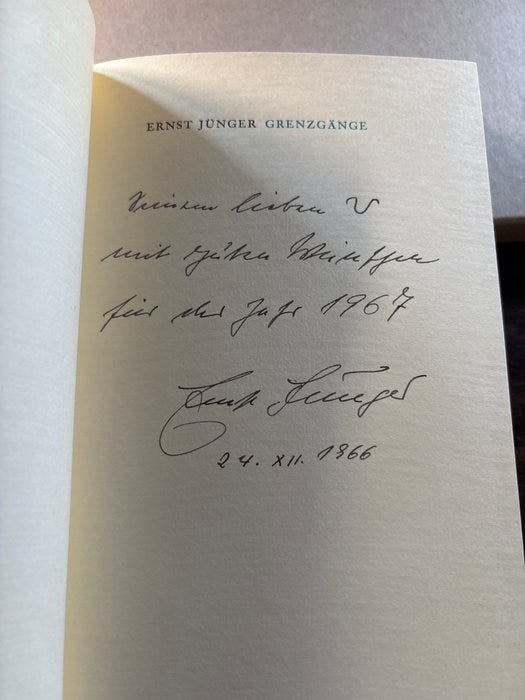 ERNST JÜNGER GRENZGÄNGE
lieben
mit guten Wünschen
für das Jahr 1967
Ernst Jünger
24. XII. 1966